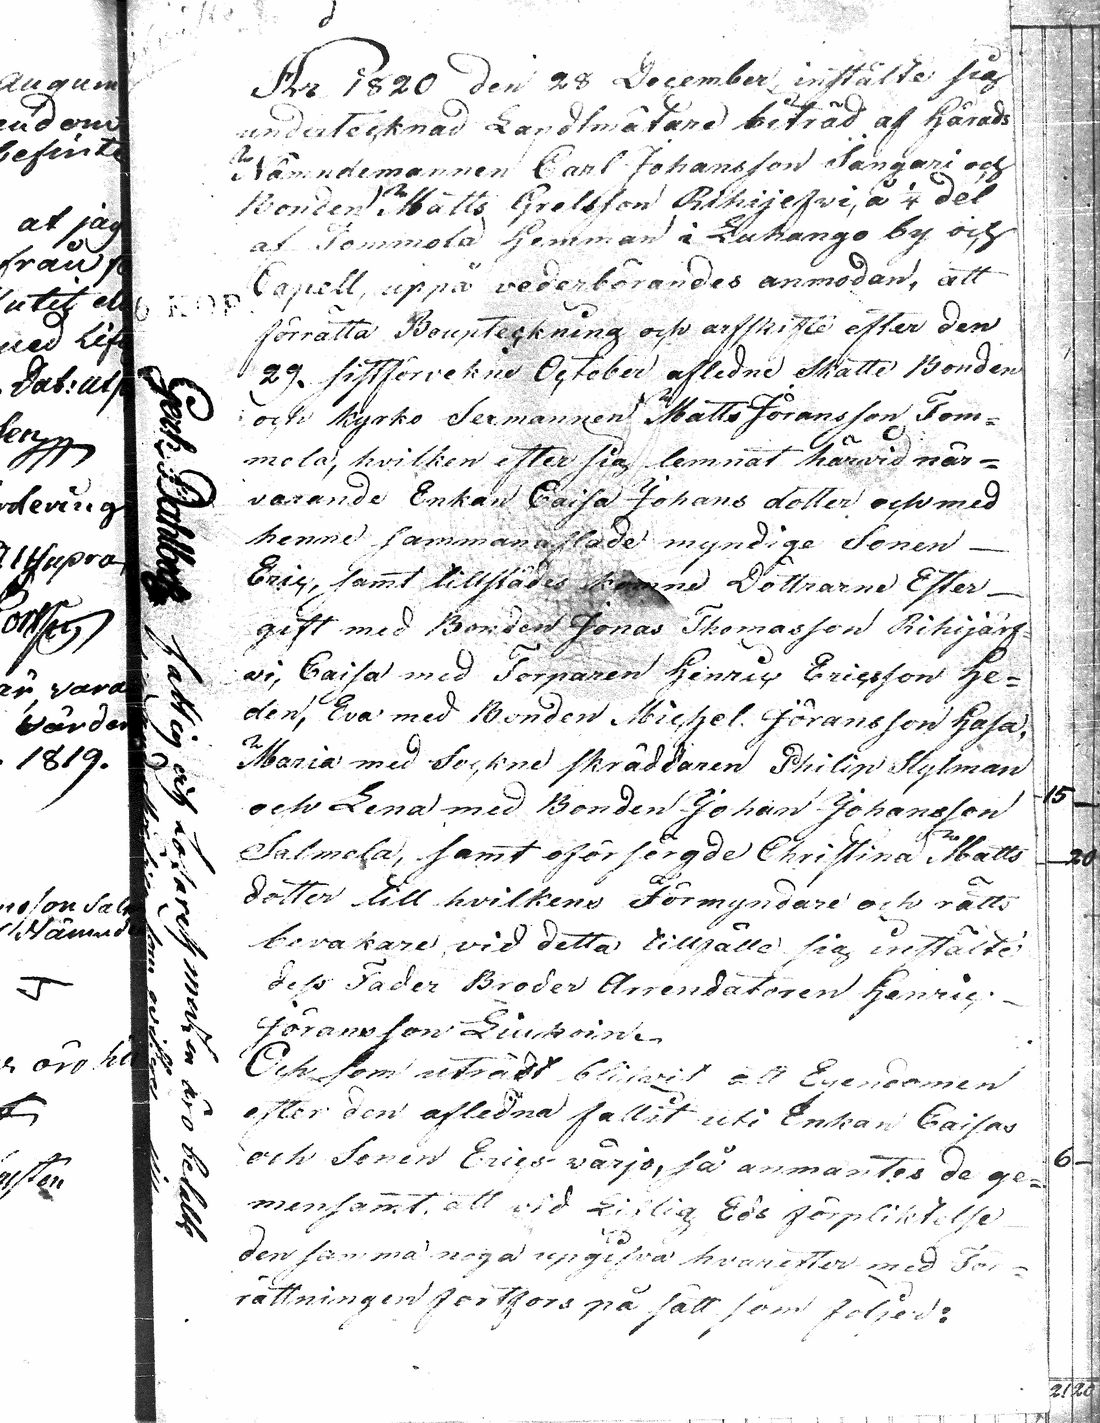 augum
at jag
från
med Lif
Dat: ut
vara
värden
1819.
Åhr 1820 den 28 December, instälte sig
undertecknad Landtmätare biträd af Härads
Nämndemannen Carl Johansson Tangari och
Bonden Matts Grelsson Rihijefvi, å ¼ del
af Tommola Hemman i Luhango by och
Capell, uppå vederbörandes anmodan, att
förrätta Bouptekning och arfskifte efter den
29. sistförvekne October afledne Skatte Bonden
och kyrko Sexmannen Matts Jöransson Tom=
mola, hvilken efter sig lemnat härvid när=
varande Enkan Caisa Johans dotter och med
henne sammanaflade myndige Sonen —
Eric, samt tillstädes komne Döttrarne Ester —
gift med Bonden Jonas Thomasson Rihijärf=
vi, Caisa med Torparen Henric Ericsson He=
den, Eva med Bonden Michel Jöransson Hasa,
Maria med Sockne skräddaren Philip Stylman
och Lena med Bonden Johan Johansson
Salmela, samt oförsörgde Christina Matts
dotter till hvilkens Förmyndare och rätts
bevakare vid detta tillfälle sig instälte
dess Fader Broder Arrendatoren Henric —
Jöransson Liukoin.
Och som uträdt blifvit att Egendomen
efter den afledna fallit uti Enkan Caisas
och Sonen Erics värjo, så anmantes de ge=
mensamt, att vid Liflig Eds förpliktelse
den samma noga upgifva hvarefter med För=
rättningen fortfors på sätt som följer:
och Lösaregendom äro betalt
15
20
6
21 20